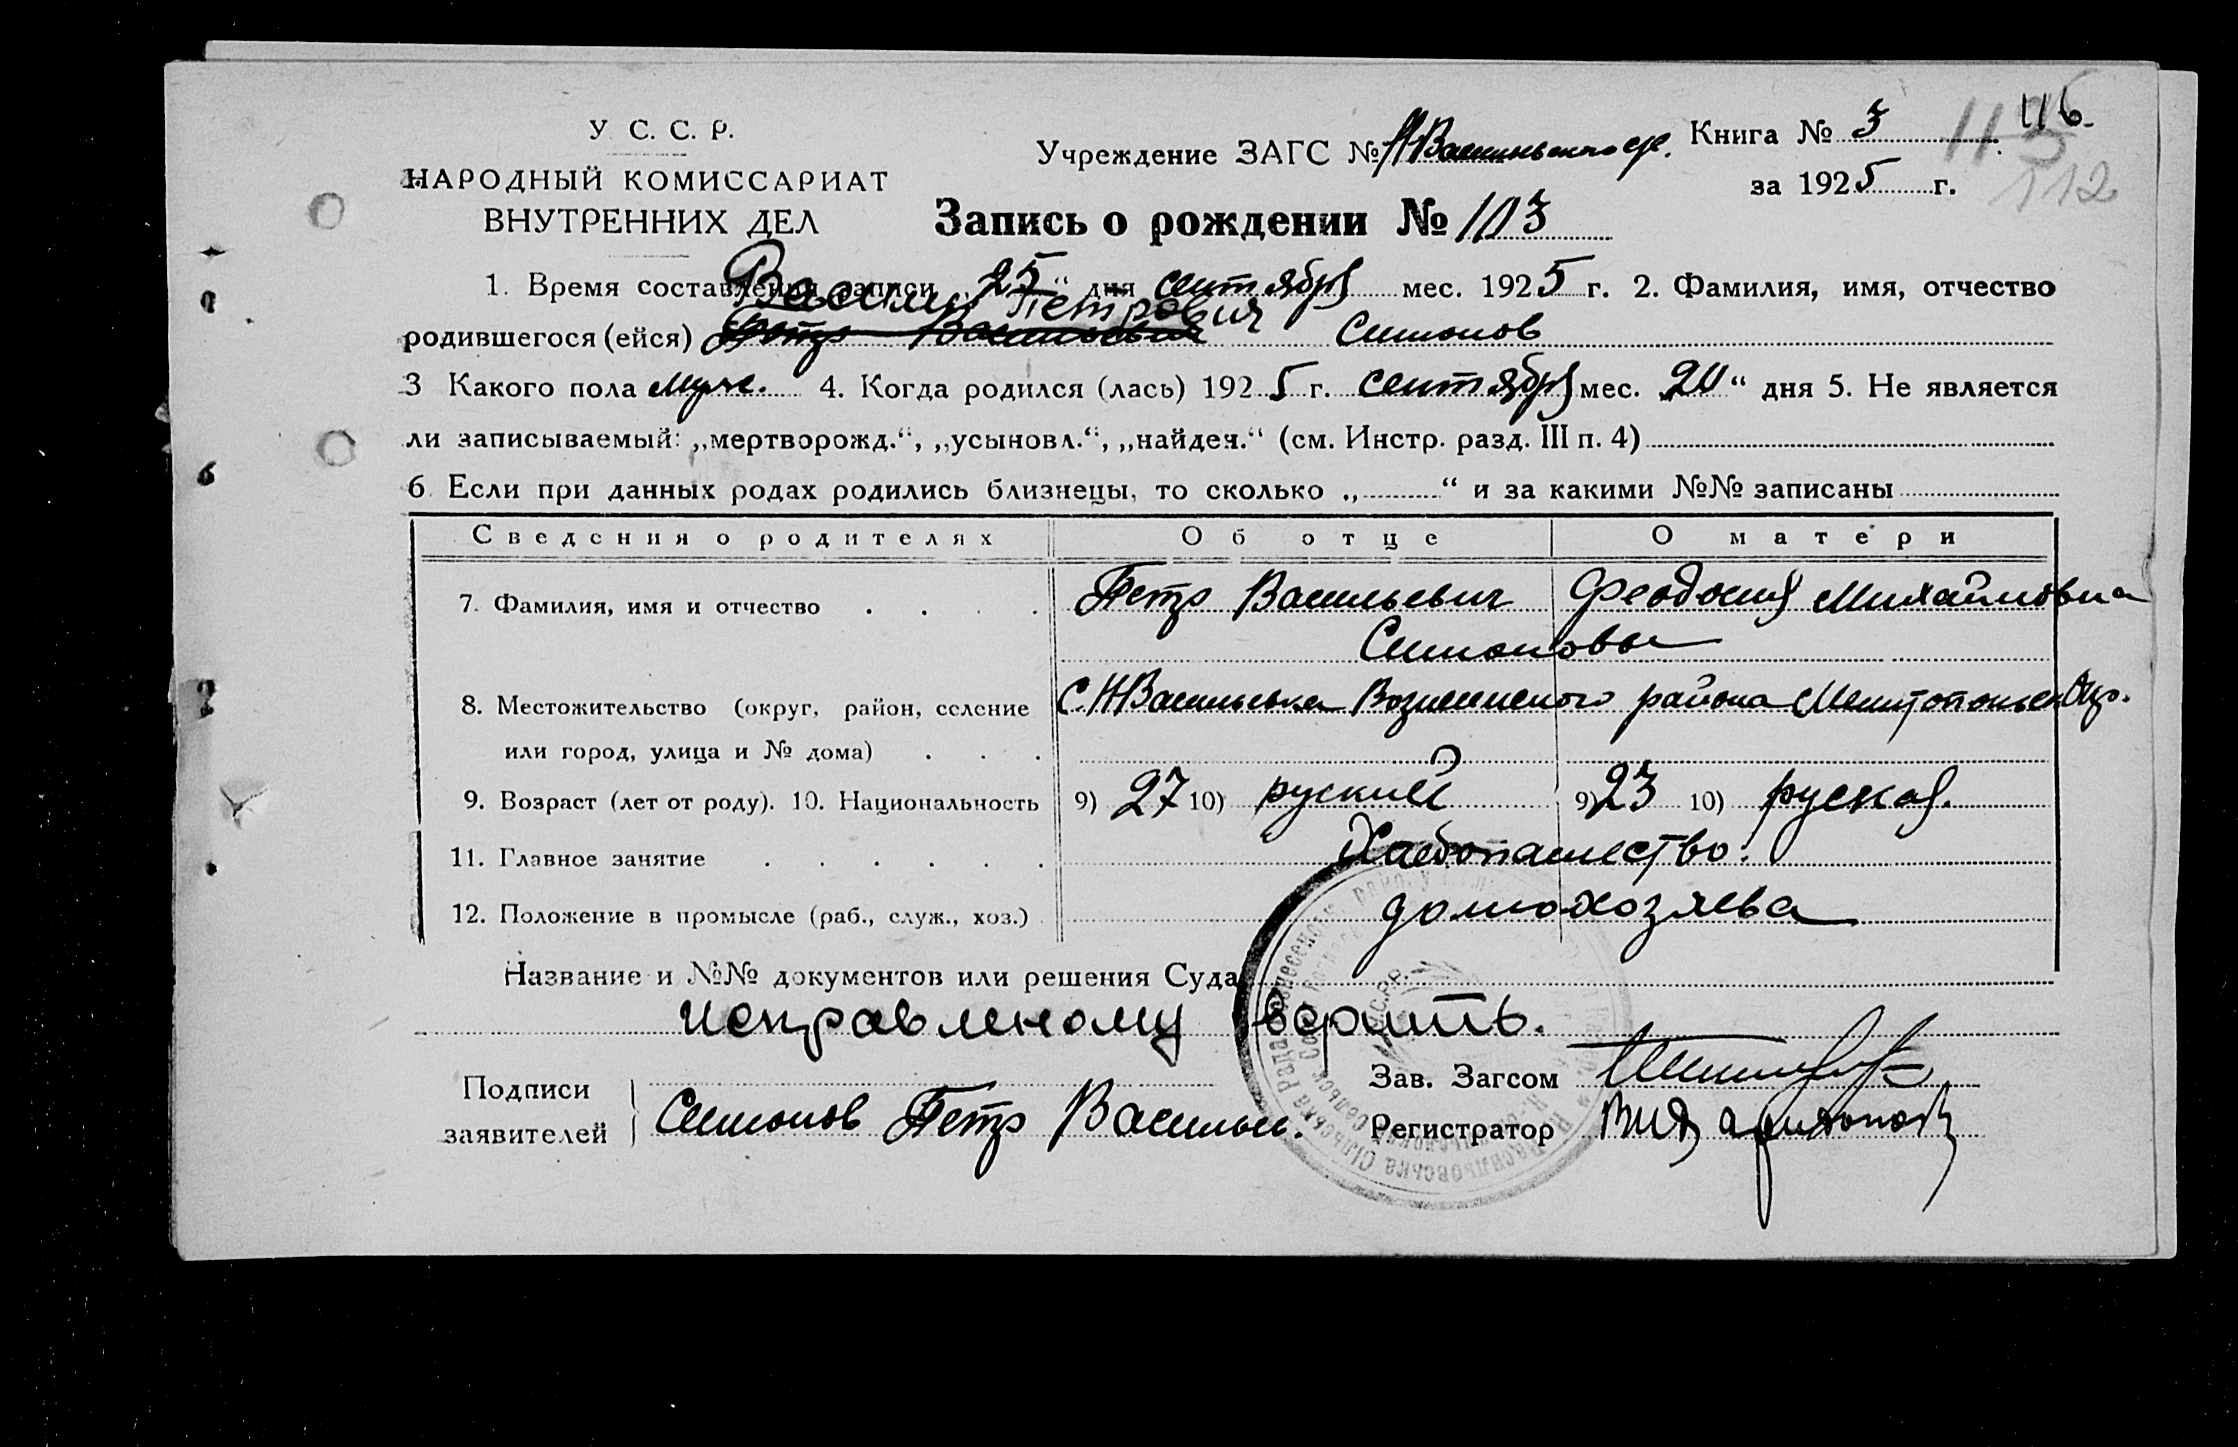 У. С. С. Р.
НАРОДНЫЙ КОМИССАРИАТ
ВНУТРЕННИХ ДЕЛ
Учреждение ЗАГС №
Книга № 3
116.
113
112
за 1925 г.
Запись о рождении № 103
1. Время составления записи „25“ дня сентября мес. 1925 г. 2. Фамилия, имя, отчество
Василий Петрович
родившегося (ейся) Петр Васильевич Симонов
3 Какого пола муж. 4. Когда родился (лась) 1925 г. сентября мес. „20“ дня 5. Не является
ли записываемый: „мертворожд.“, „усыновл.“, „найден.“ (см. Инстр. разд. III п. 4)
6. Если при данных родах родились близнецы, то сколько „ “ и за какими №№ записаны
Сведения о родителях Об отце О матери
7. Фамилия, имя и отчество Петр Васильевич Феодосия Михайловна
Симоновы
8. Местожительство (округ, район, селение С. Н Васильевка Вознесенского района Мелитопольск Окр.
или город, улица и № дома)
9. Возраст (лет от роду). 10. Национальность 9) 27 10) руский 9) 23 10) руская.
11. Главное занятие Хлебопашество.
12. Положение в промысле (раб., служ., хоз.) домохозяева
Название и №№ документов или решения Суда
исправленому верить.
Подписи
заявителей
Симонов Петр Василь
Зав. Загсом
Регистратор